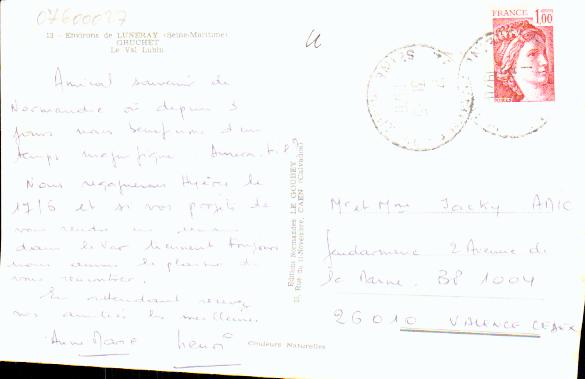 07600027
13 - Environs de LUNERAY (Seine-Maritime)
GRUCHET
Le Val Lubin
FRANCE
1,00
Amical souvenir de
Normandie où depuis 3
jours nous bénéficions d'un
temps magnifique
Nous regagnerons Hyères le
17/6 et si vos projets de
vous rendre
dans le Var tiennent toujours
nous aurons le plaisir de
vous rencontrer.
En attendant recevez
nos amitiés les meilleures
Anne Marie Henri
Edition Normandes LE GOUBEY
Rue du 11-Novembre, CAEN (Calvados)
Couleurs Naturelles
Mr et Mme Jacky AMIC
Gendarmerie 2 Avenue de
la Marne. BP 1004
26010 VALENCE CEDEX